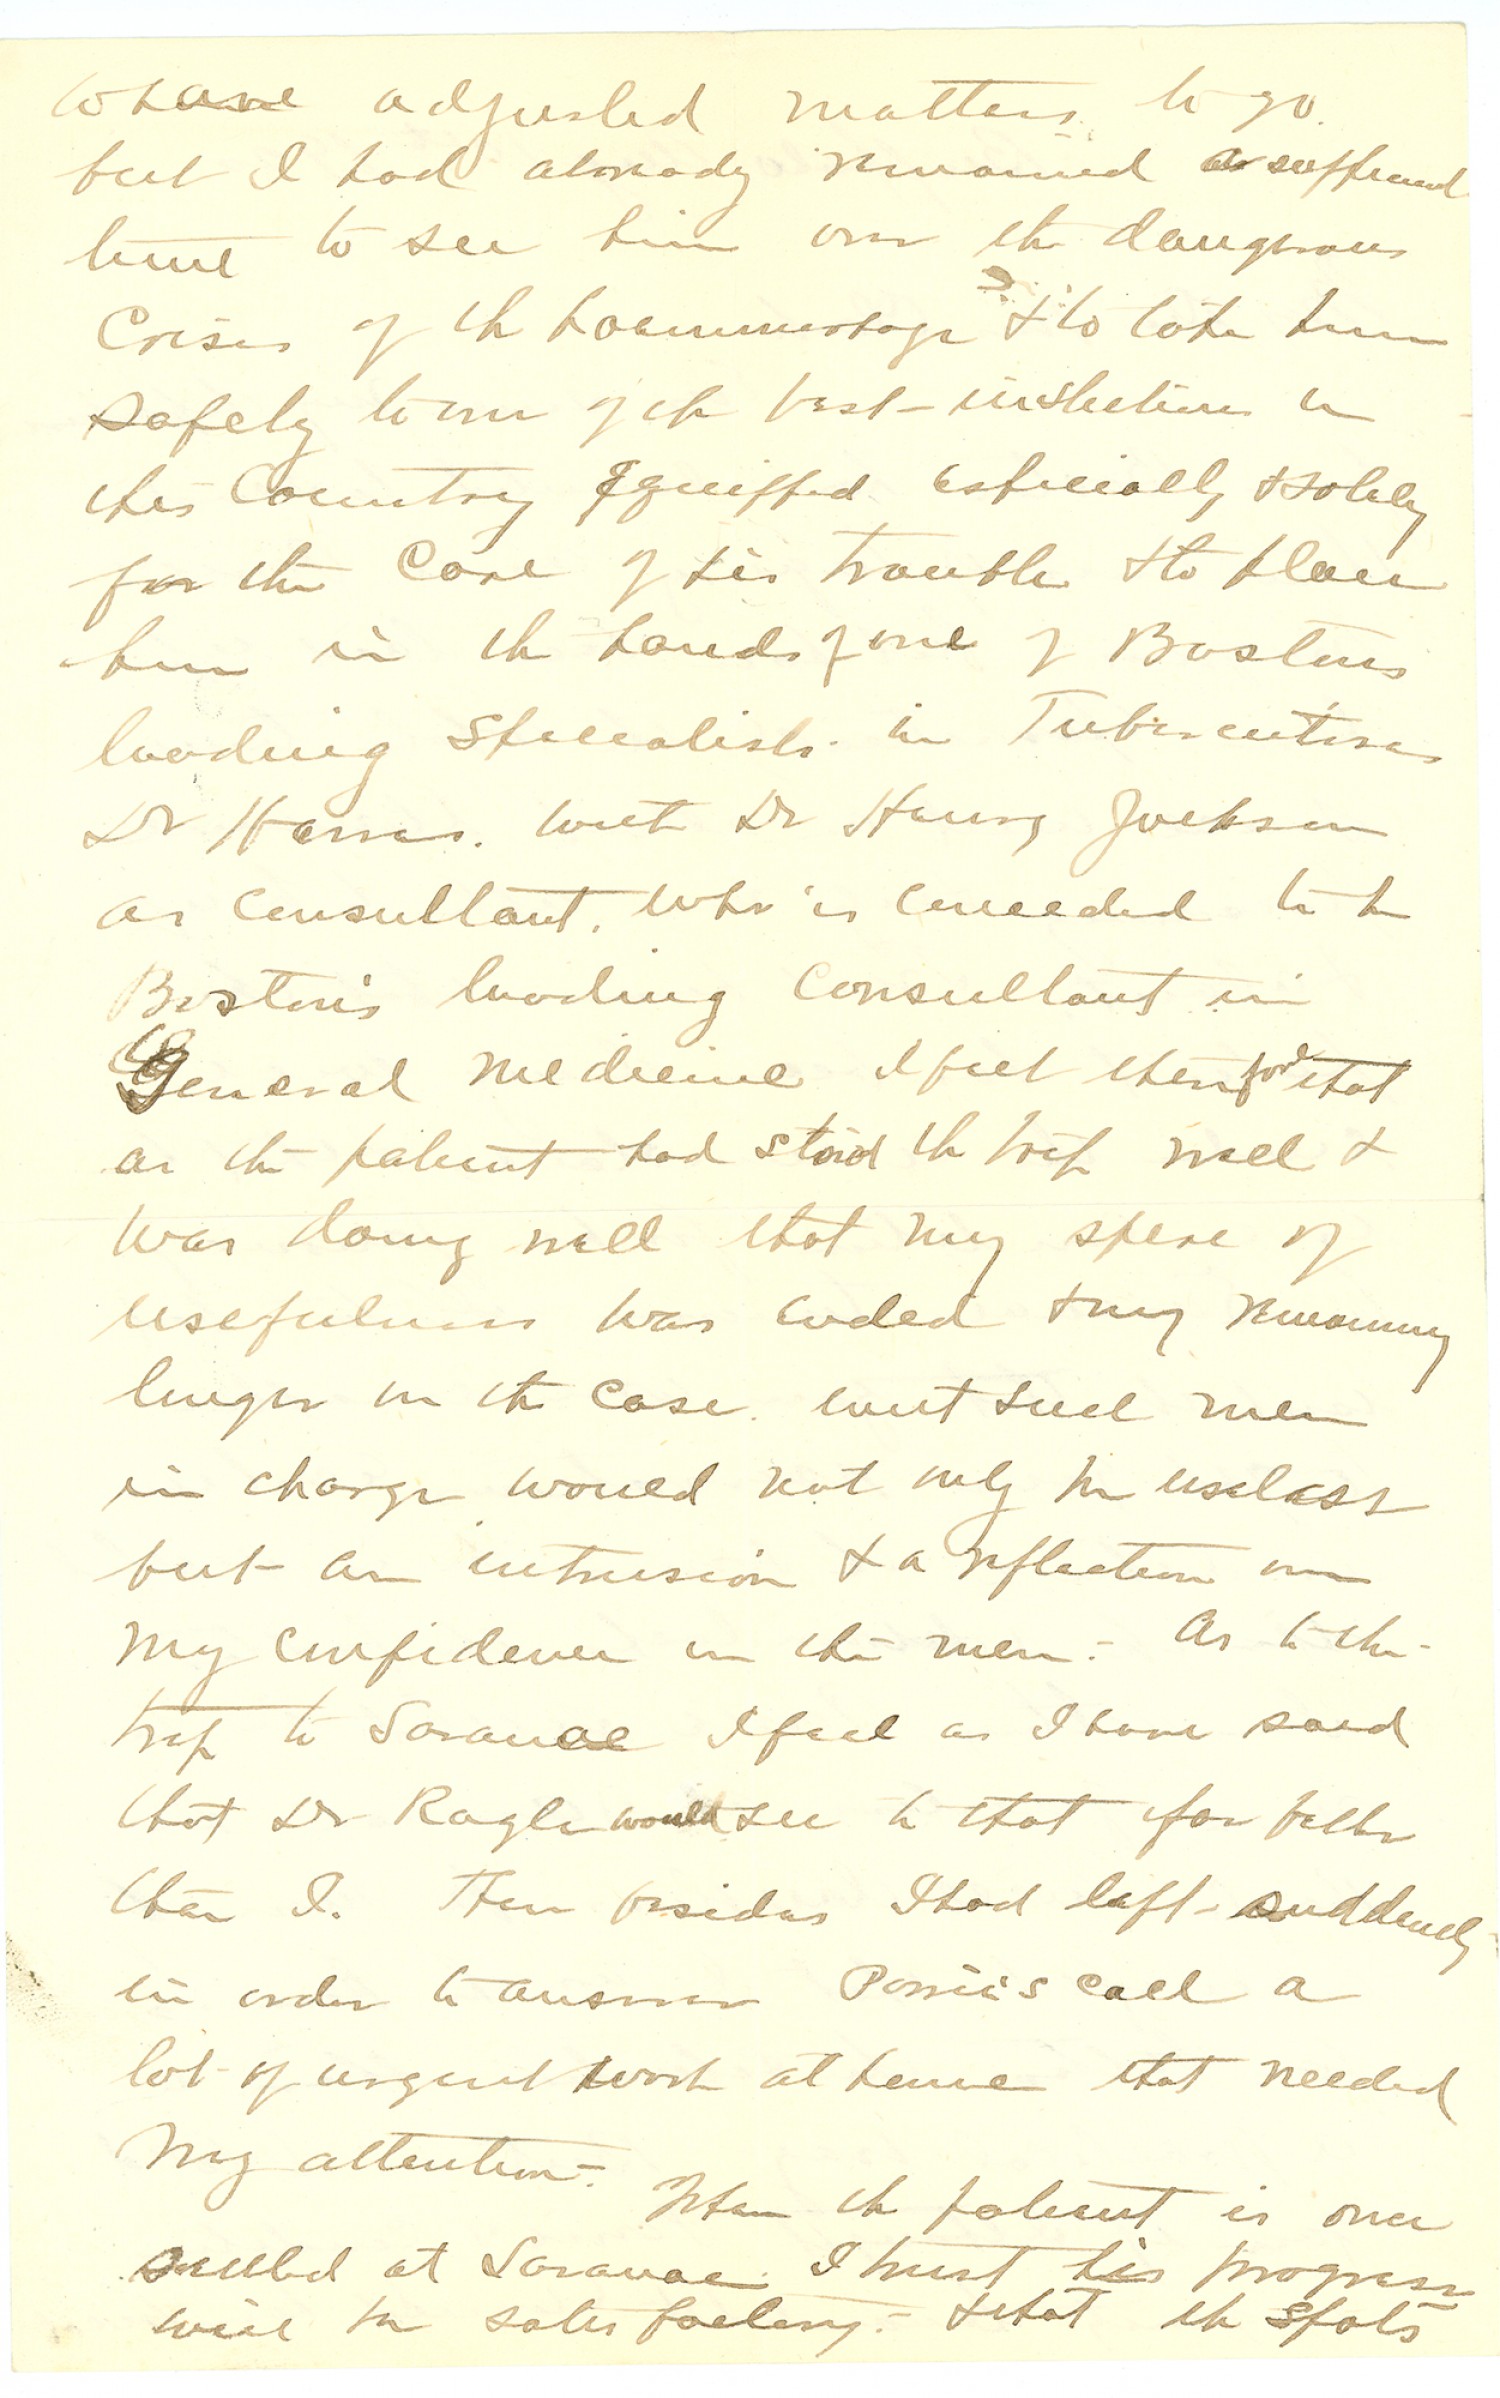 to have adjusted matters to go.
but I had already remained a sufficient
time to see him over the dangerous
Crisis of the haemmorhage & to take him
safely to one of the best institutions in
this Country Equipped especially & solely
for the Care of his trouble & to place
him in the hands of one of Bostons
leading Specialists in Tuberculosis
Dr Harris. with Dr Henry Jackson
as Consultant. who is conceeded to be
Boston's leading Consultant in
General Medicine I feel therefore that
as the patient had stood the trip well &
was doing well that my spere of
usefulness was ended & my remaining
longer on the Case. with such men
in charge would not only be useless
but an intrusion & a reflection on
my confidence in the men - As to the
trip to Saranac I feel as I have said
that Dr Ragle would see to that far better
than I. Then besides I had left suddenly
in order to answer call a
lot of urgent work at home that needed
my attention -
When the patient is once
settled at Saranac I trust his progress
will be satisfactory - & that the spots